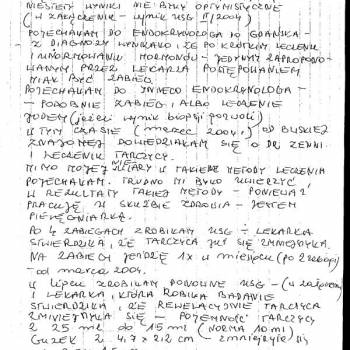 NIESTETY WYNIKI NIE BYŁY OPTYMISTYCZNE
(W ZAŁĄCZENIU - WYNIK USG II/2004)
POJECHAŁAM DO ENDOKRYNOLOGA DO GDAŃSKA -
Z DIAGNOZY WYNIKAŁO, ŻE PO KRÓTKIM LECZENIU
I UNORMOWANIU HORMONÓW - JEDYNYM ZAPROPONO-
WANYM PRZEZ LEKARZA POSTĘPOWANIEM
MIAŁ BYĆ ZABIEG.
POJECHAŁAM DO INNEGO ENDOKRYNOLOGA -
- PODOBNIE ZABIEG I ALBO LECZENIE
JODEM (jeżeli wynik biopsji pozwoli)
W TYM CZASIE (marzec 2004r.) OD BLISKIEJ
ZNAJOMEJ DOWIEDZIAŁAM SIĘ O DR
I LECZENIU TARCZYCY.
MIMO MOJEJ NIEWIARY W TAKIE METODY LECZENIA
POJECHAŁAM. TRUDNO MI BYŁO UWIERZYĆ
W REZULTATY TAKIEJ METODY - PONIEWAŻ
PRACUJĘ W SŁUŻBIE ZDROWIA - JESTEM
PIELĘGNIARKĄ.
PO 4 ZABIEGACH ZROBIŁAM USG - LEKARKA
STWIERDZIŁA, ŻE TARCZYCA JUŻ SIĘ ZMNIEJSZYŁA.
NA ZABIEGI JEŻDŻĘ 1x W MIESIĄCU (PO 2 ZABIEGI)
- OD marca 2004.
W LIPCU ZROBIŁAM PONOWNE USG - (W
I LEKARKA, KTÓRA ROBIŁA BADANIE
STWIERDZIŁA, ŻE REWELACYJNIE TARCZYCA
ZMNIEJSZYŁA SIĘ - POJEMNOŚĆ TARCZYCY
Z 25 ml DO 15 ml (NORMA 10 ml)
GUZEK Z 4,7 x 2,2 cm - ZMNIEJSZYŁ SIĘ